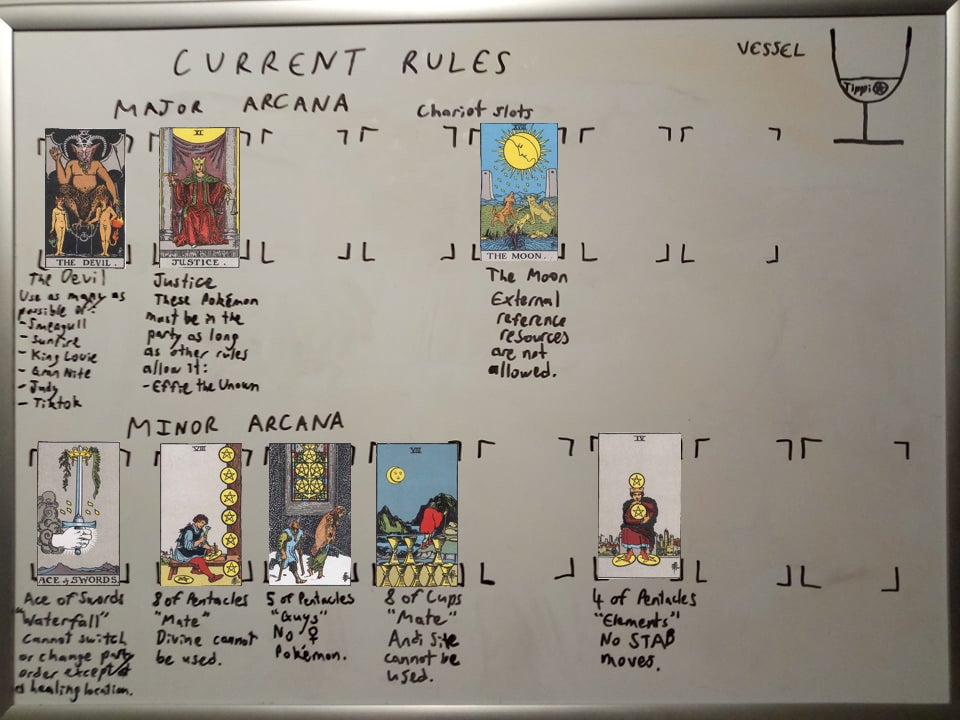 CURRENT RULES
VESSEL
Tippi
MAJOR ARCANA
Chariot slots
XV
THE DEVIL.
XI
JUSTICE.
XVIII
THE MOON.
The Devil
Use as many as
possible of:
- Smeagull
- Sunfire
- King Louie
- Gran Nite
- Judy
- Tiktok
Justice
These Pokémon
must be in the
party as long
as other rules
allow it:
- Effie the Unown
The Moon
External
reference
resources
are not
allowed.
MINOR ARCANA
ACE of SWORDS.
VIII
VIII
IV
Ace of Swords
"Waterfall"
Cannot switch
or change party
order except at
healing location.
8 of Pentacles
"Mate"
Divine cannot
be used.
5 of Pentacles
"Guys"
No ♀
Pokémon.
8 of Cups
"Mate"
And Site
cannot be
used.
4 of Pentacles
"Elements"
No STAB
moves.